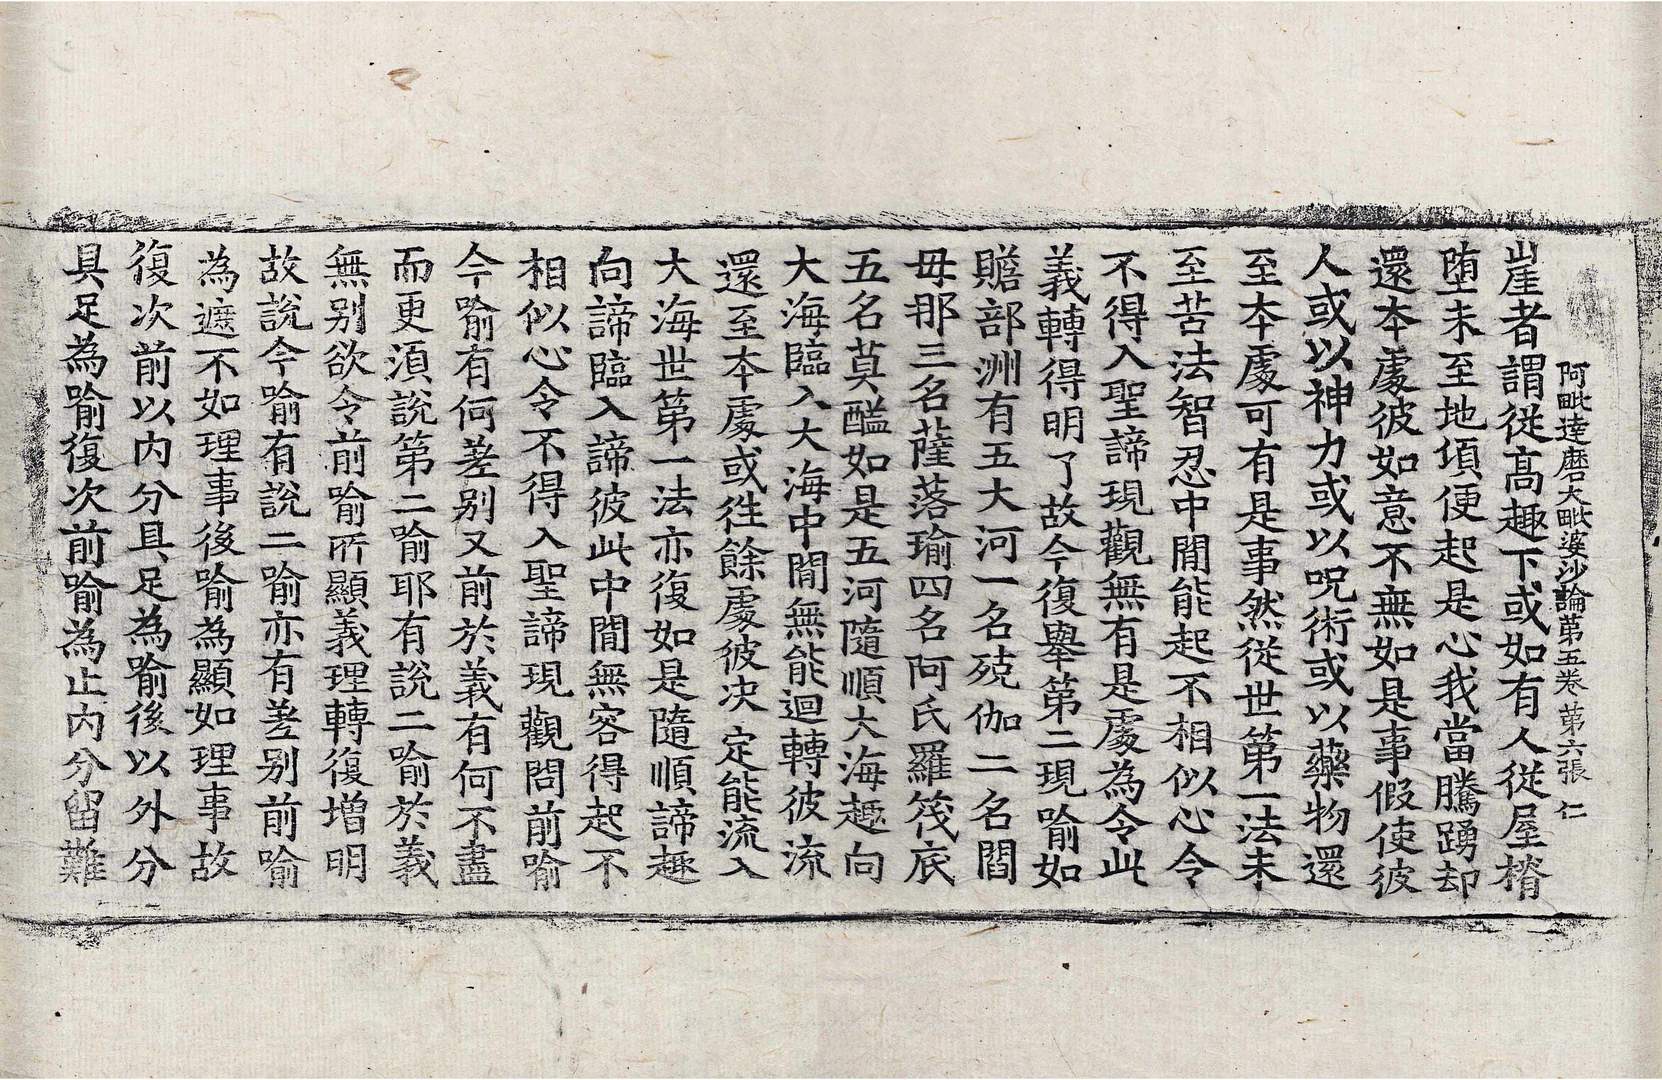 阿毗達磨大毗婆沙論第五卷 第六張 仁
崖者謂從高趣下或如有人從屋㭰
堕未至地頃便起是心我當騰踴却
還本處彼如意不無如是事假使彼
人或以神力或以呪術或以藥物還
至本處可有是事然從世第一法未
至苦法智忍中閒能起不相似心令
不得入聖諦現觀無有是處為令此
義轉得明了故今復舉第二現喻如
贍部洲有五大河一名殑伽二名閻
毋那三名薩落瑜四名阿氏羅筏底
五名莫醯如是五河隨順大海趣向
大海臨入大海中閒無能迴轉彼流
還至本處或徃餘處彼决定能流入
大海世第一法亦復如是隨順諦趣
向諦臨入諦彼此中閒無容得起不
相似心令不得入聖諦現觀問前喻
今喻有何差别又前於義有何不盡
而更須說第二喻耶有說二喻於義
無别欲令前喻所顯義理轉復增明
故說今喻有說二喻亦有差别前喻
為遮不如理事後喻為顯如理事故
復次前以内分具足為喻後以外分
具足為喻復次前喻為止内分留難